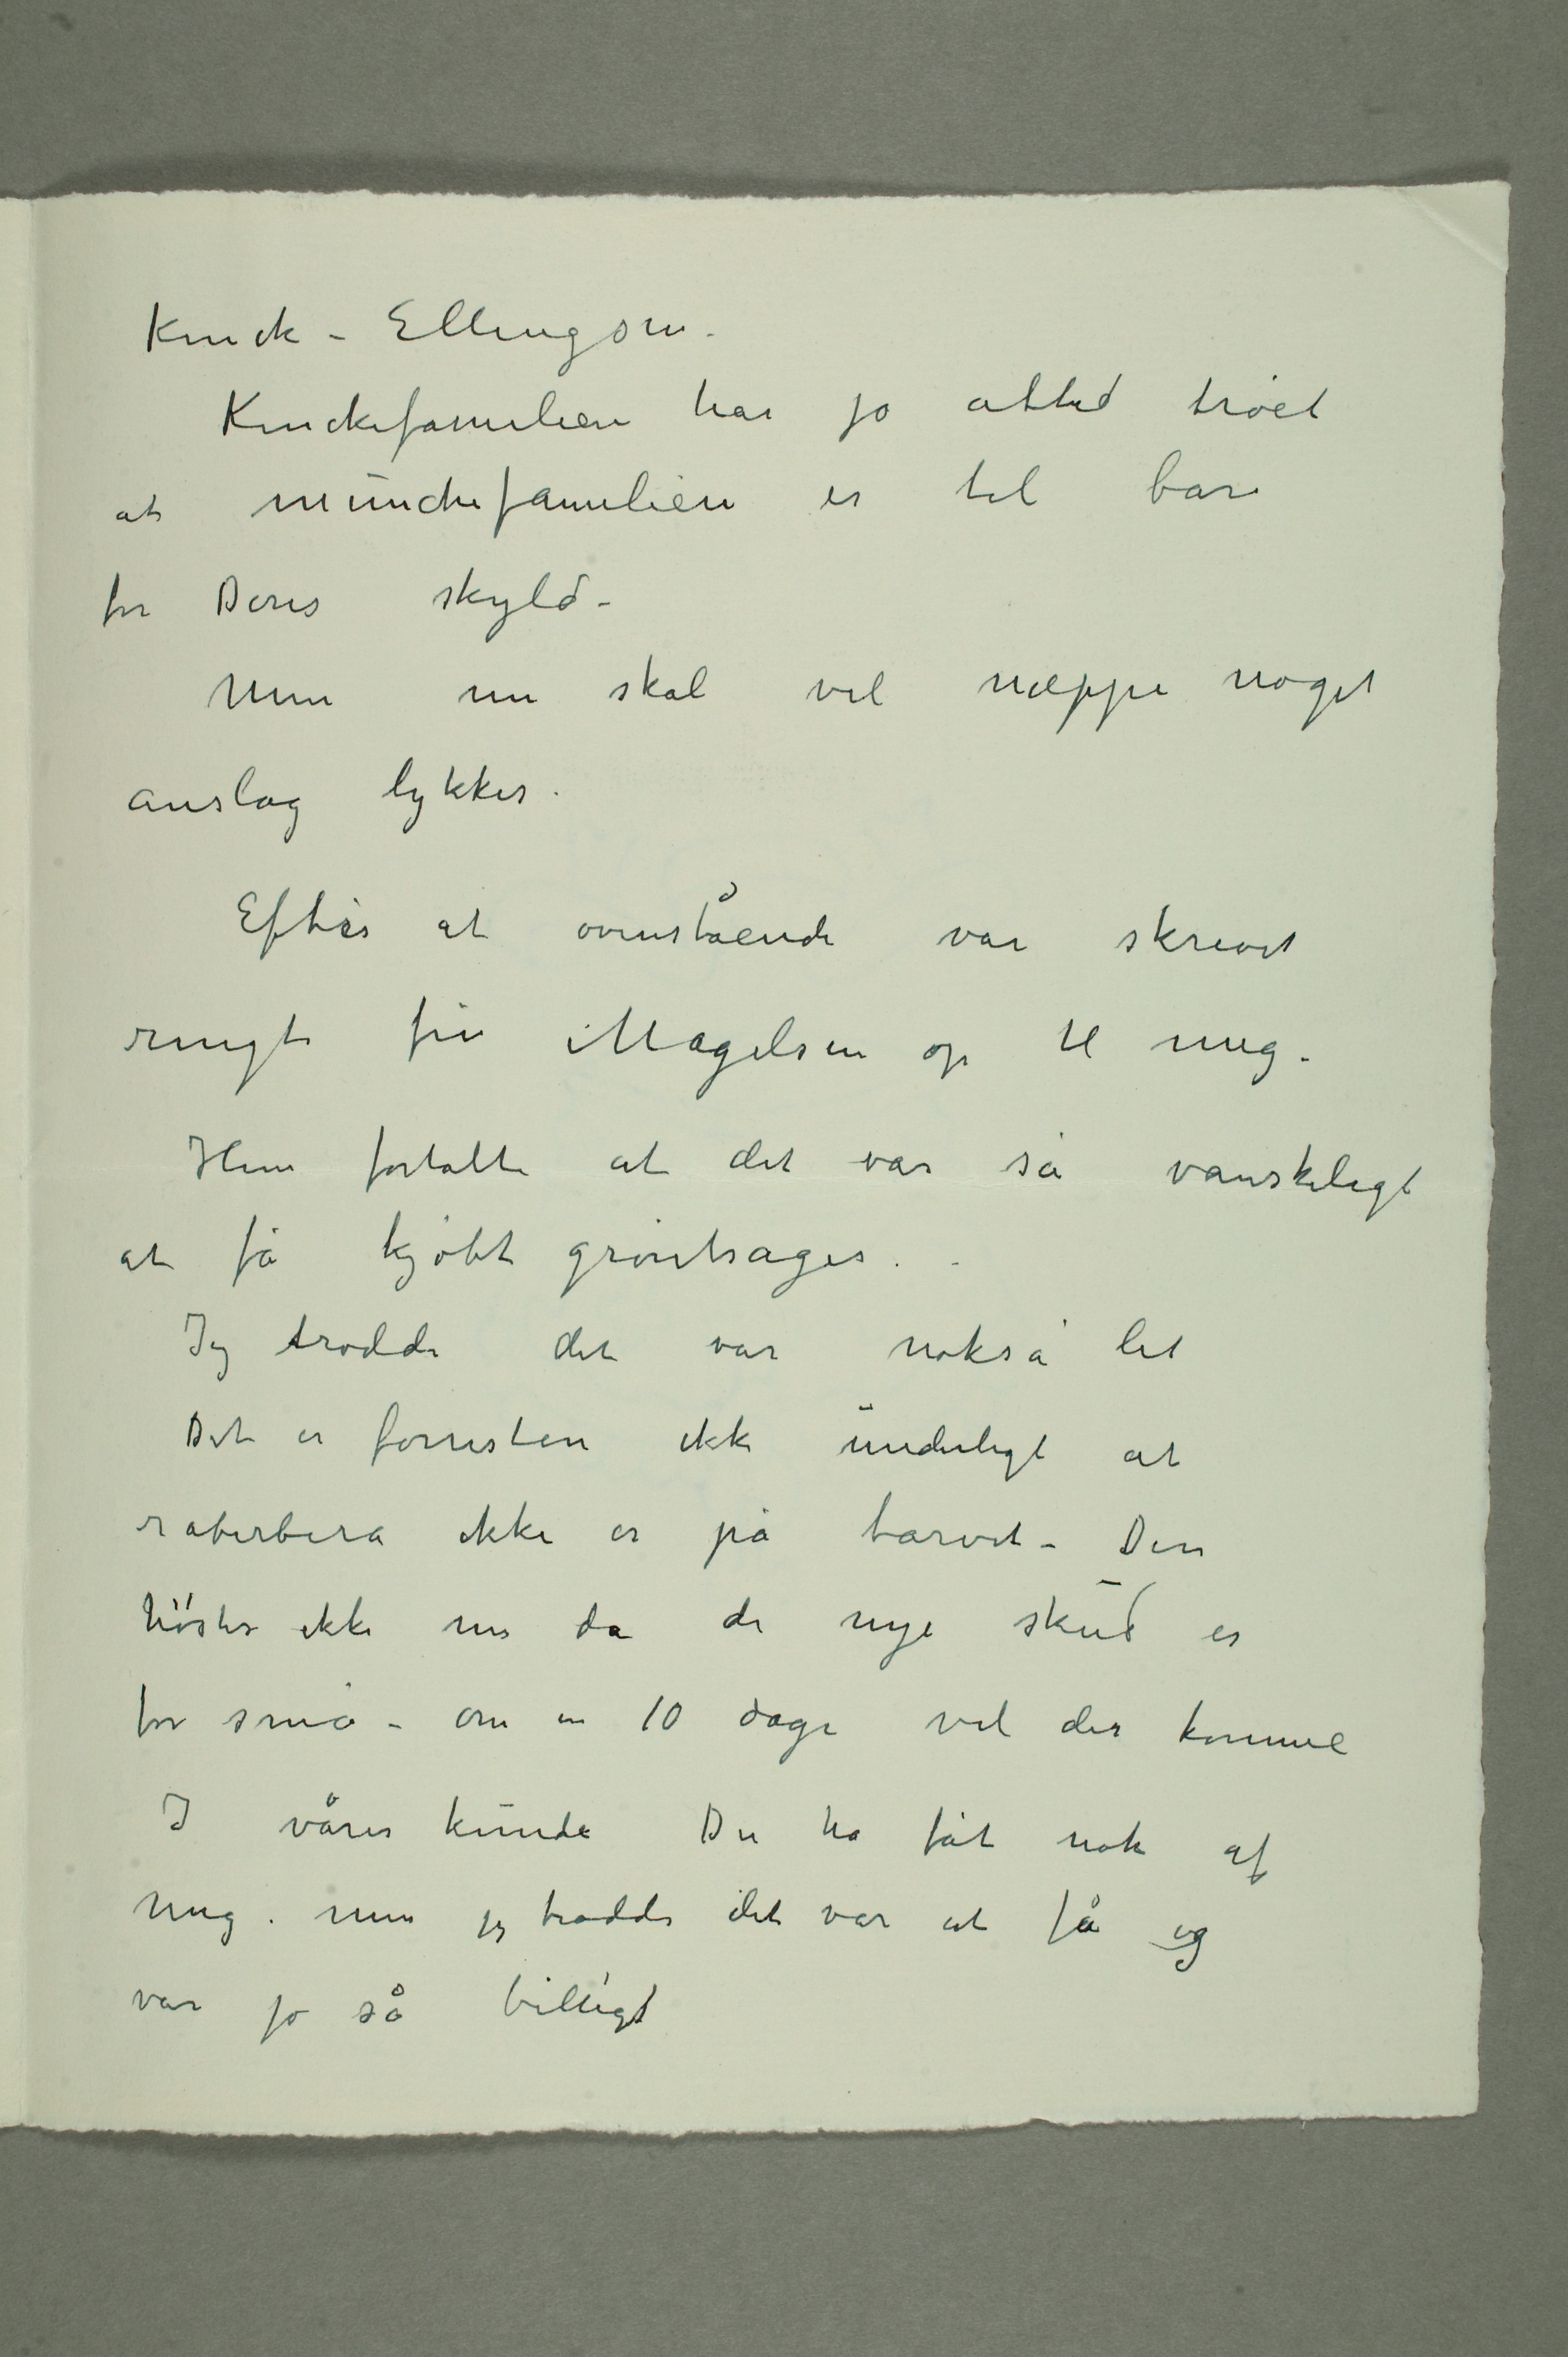 Kinck – Ellingsen.
Kinckefamilien har jo altid troet
at munchefamilien er til bare
for Deres skyld –
Men nu skal vel næppe noget
anslag lykkes.
Efter at ovenstående var skrevet
ringte frk Magelsen op til mig.
Hun fortalte at det var så vanskeligt
at få kjøbt grøntsager. –
Jeg trodde det var nokså let
Det er forresten ikke underligt at
raberbera ikke er på torvet – Den
høstes ikke nu da de nye skud er
for små – om en 10 dage vil der komme
I våres kunde Du ha fåt nok af
mig. men jeg trodde det var at få og
var jo så billigt